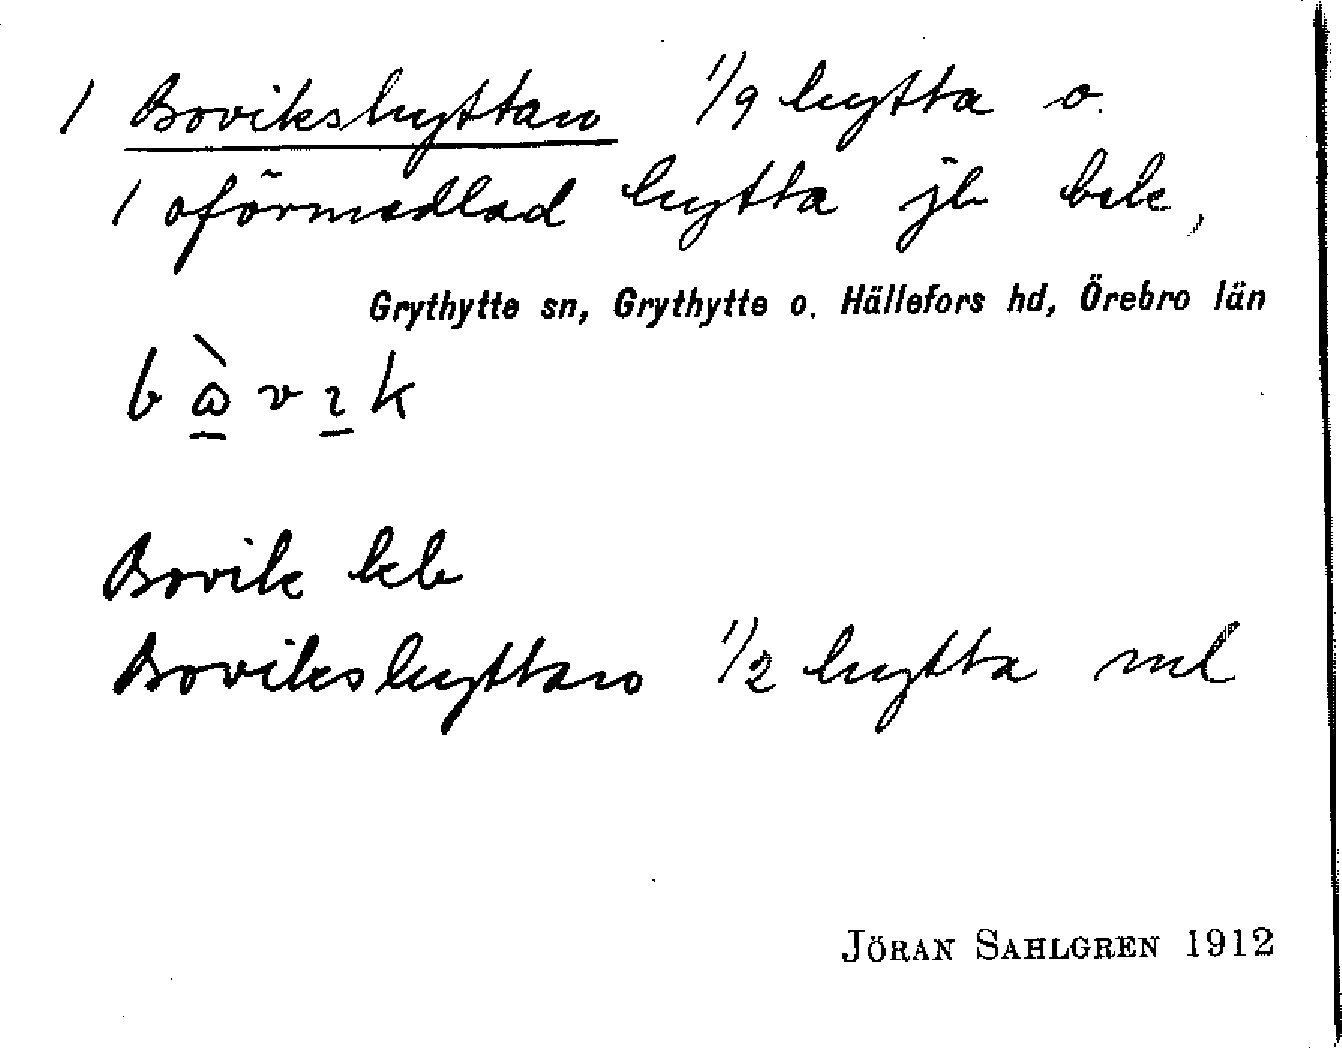 1 Bovikshyttan 1/9 hytta o.
1 oförmedlad hytta jb bek,
Grythytte sn, Grythytte o. Hällefors hd, Örebro län
Bovik kb
Bovikshyttan 1/2 hytta ml
JÖRAN SAHLGREN 1912